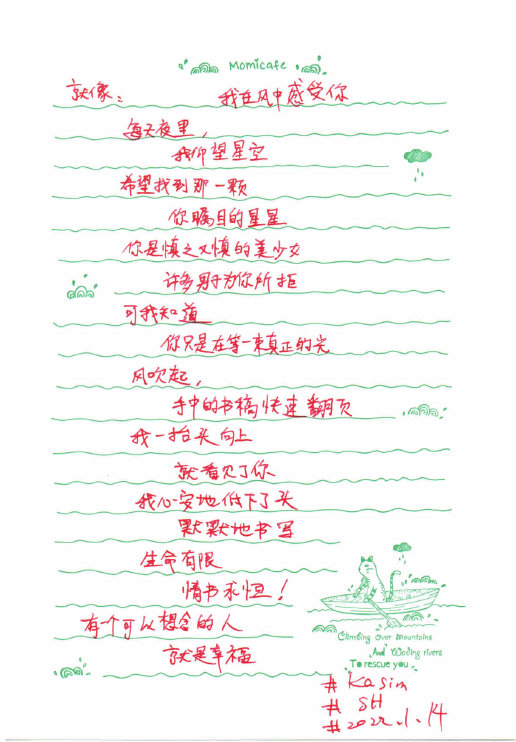 Momicafe
就像： 我在风中感受你
每天夜里，
我仰望星空
希望找到那一颗
你瞩目的星星
你是慎之又慎的美少女
许多男子为你所拒
可我知道
你只是在等一束真正的光
风吹起，
手中的书稿快速翻页
我一抬头向上
就看见了你
我心安地低下了头
默默地书写
生命有限
情书永恒！
有个可以想念的人
就是幸福
Climbing over mountains
And Wading rivers
To rescue you
# Kasim
# SH
# 2022.1.14